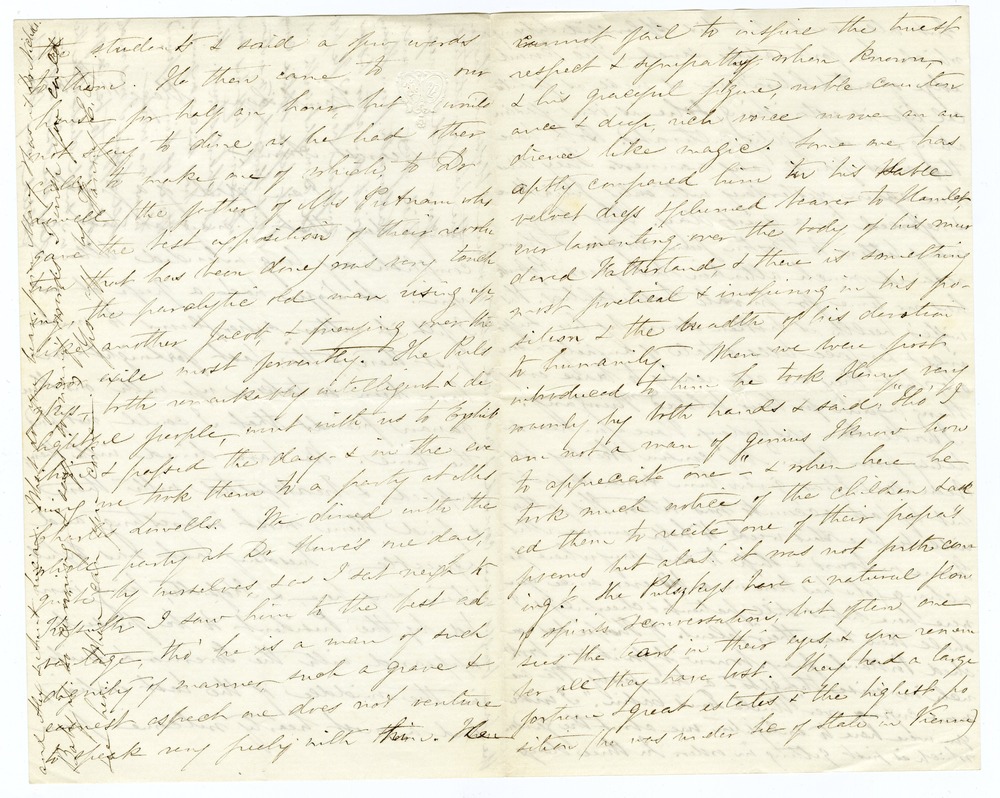 students & said a few words
to them. He then came to our
house for half an hour, but could
not stay to dine, as he had other
calls to make, one of which, to Dr
Lowell (the father of Mrs Putnam who
gave the best exposition of their revolu
tion that has been done) was very touch
ing the paralytic old man rising up,
like another Jacob & praying over the
poor exile most fervently. The Puls
kys, both remarkably intelligent & de
lightful people, went with us to
& passed the day & in the eve
ning we took them to a party at Mrs
Charles Lowells. We dined with the
whole party at Dr Howe's one day,
quite by ourselves, & as I sat next to
Kossuth I saw him to the best ad
vantage, tho' he is a man of such
dignity of manner, such a grave &
earnest aspect one does not venture
to speak very freely with him. He
cannot fail to inspire the truest
respect & sympathy when known,
& his graceful figure, noble counten
ance & deep, rich voice move an au
dience like magic. Some one has
aptly compared him in his sable
velvet dress & plumed beaver to Hamlet
ever lamenting over the body of his mur
dered Fatherland, & there is something
most poetical & inspiring in his po-
sition & the breadth of his devotion
to humanity. When we were first
introduced to him he took Henry very
warmly by both hands & said, "Tho' I
am not a man of genius I know how
to appreciate one" - & when here he
took much notice of the children & ask
ed them to recite one of their papa's
poems but alas! it was not forthcom
ing! The Pulszkys have a natural flow
of spirits & conversation, but often one
sees the tears in their eyes, & you remem
ber all they have lost. They had a large
fortune & great estates & the highest po
sition (he was under Sec of State in Vienna)